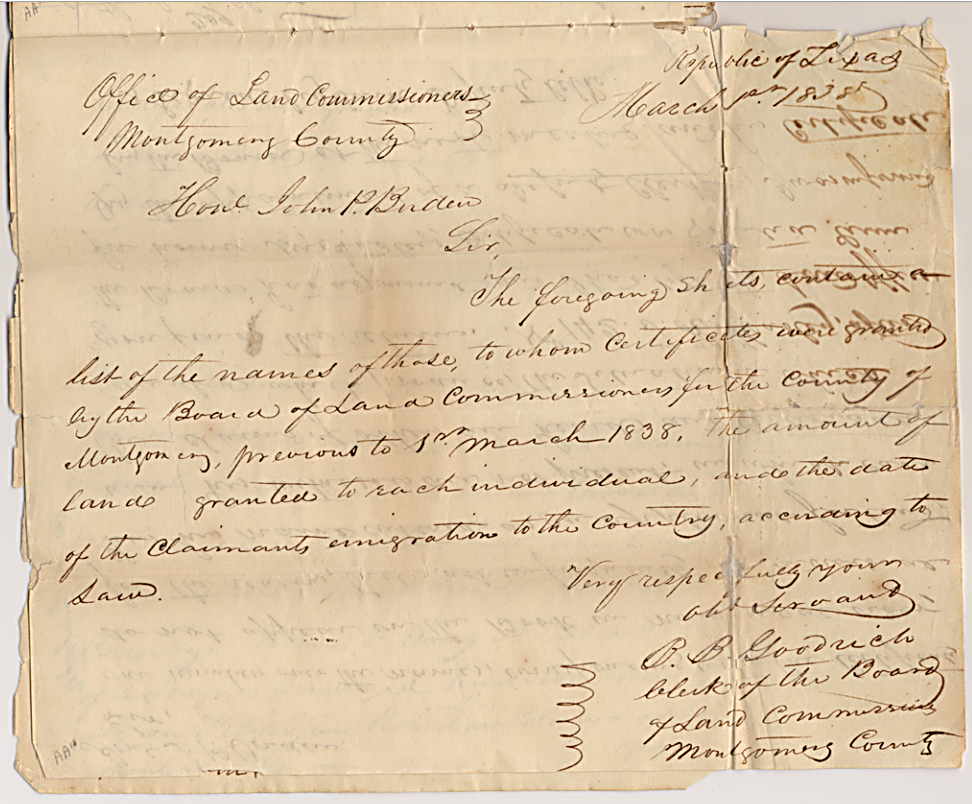 Republic of Texas
Office of Land Commissioners
March 1st 1838
Montgomery County
Honl. John P. Borden
Sir,
The foregoing Sheets, contain a
list of the names of those, to whom Certificates were granted
by the Board of Land Commissioners for the County of
Montgomery, previous to 1st March 1838, the amount of
land granted to each individual, and the date
of the Claimants emigration to the Country, according to
Law.
Very respectfully your
obt Servant
B. B. Goodrich
Clerk of the Board
of Land Commissions
Montgomery County
AA